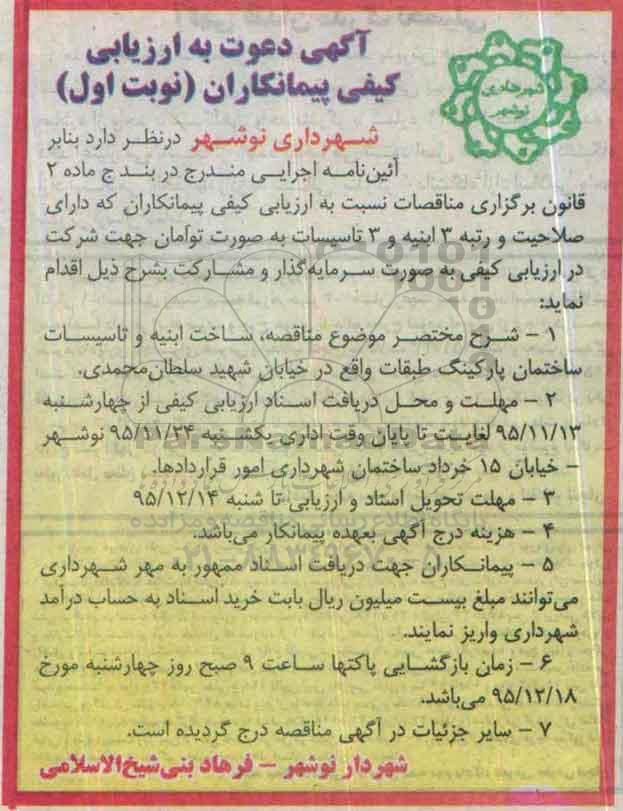 آگهی دعوت به ارزیابی
کیفی پیمانکاران (نوبت اول)
شهرداری
نوشهر
شهرداری نوشهر درنظر دارد بنابر
آئین‌نامه اجرایی مندرج در بند ج ماده ۲
قانون برگزاری مناقصات نسبت به ارزیابی کیفی پیمانکاران که دارای
صلاحیت و رتبه ۳ ابنیه و ۳ تاسیسات به صورت توأمان جهت شرکت
در ارزیابی کیفی به صورت سرمایه‌گذار و مشارکت بشرح ذیل اقدام
نماید:
۱ – شرح مختصر موضوع مناقصه، ساخت ابنیه و تاسیسات
ساختمان پارکینگ طبقات واقع در خیابان شهید سلطان‌محمدی.
۲ – مهلت و محل دریافت اسناد ارزیابی کیفی از چهارشنبه
۹۵/۱۱/۱۳ لغایت تا پایان وقت اداری یکشنبه ۹۵/۱۱/۲۴ نوشهر
– خیابان ۱۵ خرداد ساختمان شهرداری امور قراردادها.
۳ – مهلت تحویل اسناد و ارزیابی تا شنبه ۹۵/۱۲/۱۴
۴ – هزینه درج آگهی بعهده پیمانکار می‌باشد.
۵ – پیمانکاران جهت دریافت اسناد ممهور به مهر شهرداری
می‌توانند مبلغ بیست میلیون ریال بابت خرید اسناد به حساب درآمد
شهرداری واریز نمایند.
۶ – زمان بازگشایی پاکتها ساعت ۹ صبح روز چهارشنبه مورخ
۹۵/۱۲/۱۸ می‌باشد.
۷ – سایر جزئیات در آگهی مناقصه درج گردیده است.
شهردار نوشهر – فرهاد بنی‌شیخ‌الاسلامی